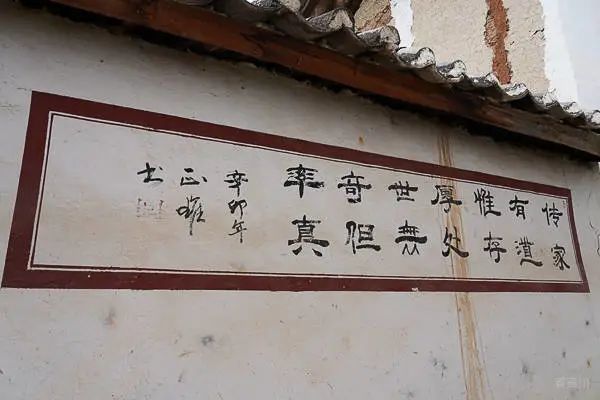 传家
有道
惟存
厚处
世無
奇但
率真
辛卯年
正
书